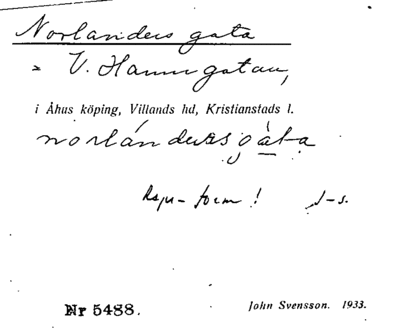 Norlanders gata
= V. Hamngatan,
i Åhus köping, Villands hd, Kristianstads l.
norlándersgàta
form! J-s.
Nr 5488.
John Svensson. 1933.